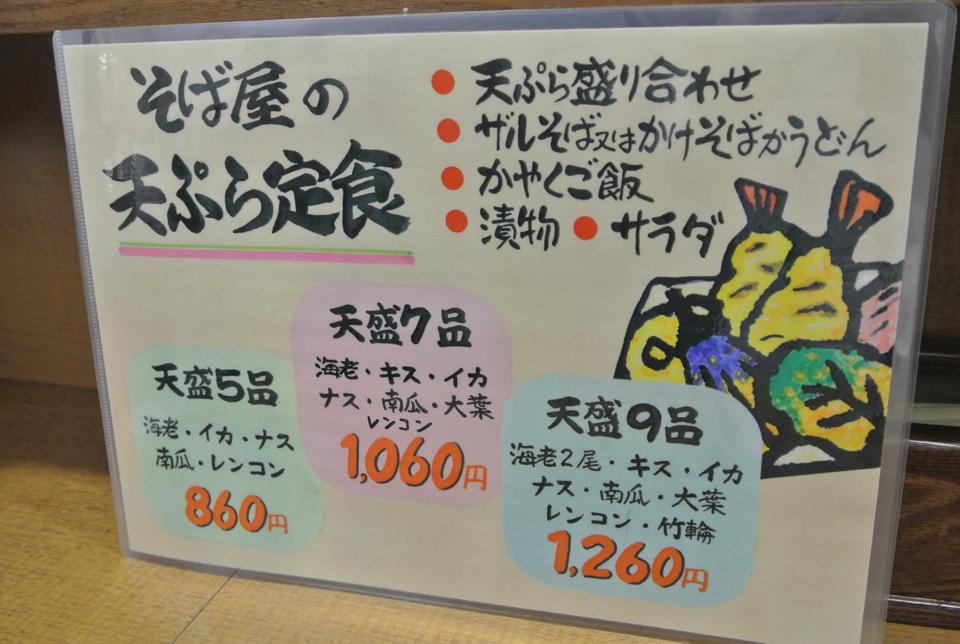 そば屋の
天ぷら定食
● 天ぷら盛り合わせ
● ザルそば又はかけそばかうどん
● かやくご飯
● 漬物 ● サラダ
天盛5品
海老・イカ・ナス
南瓜・レンコン
860円
天盛7品
海老・キス・イカ
ナス・南瓜・大葉
レンコン
1,060円
天盛9品
海老2尾・キス・イカ
ナス・南瓜・大葉
レンコン・竹輪
1,260円